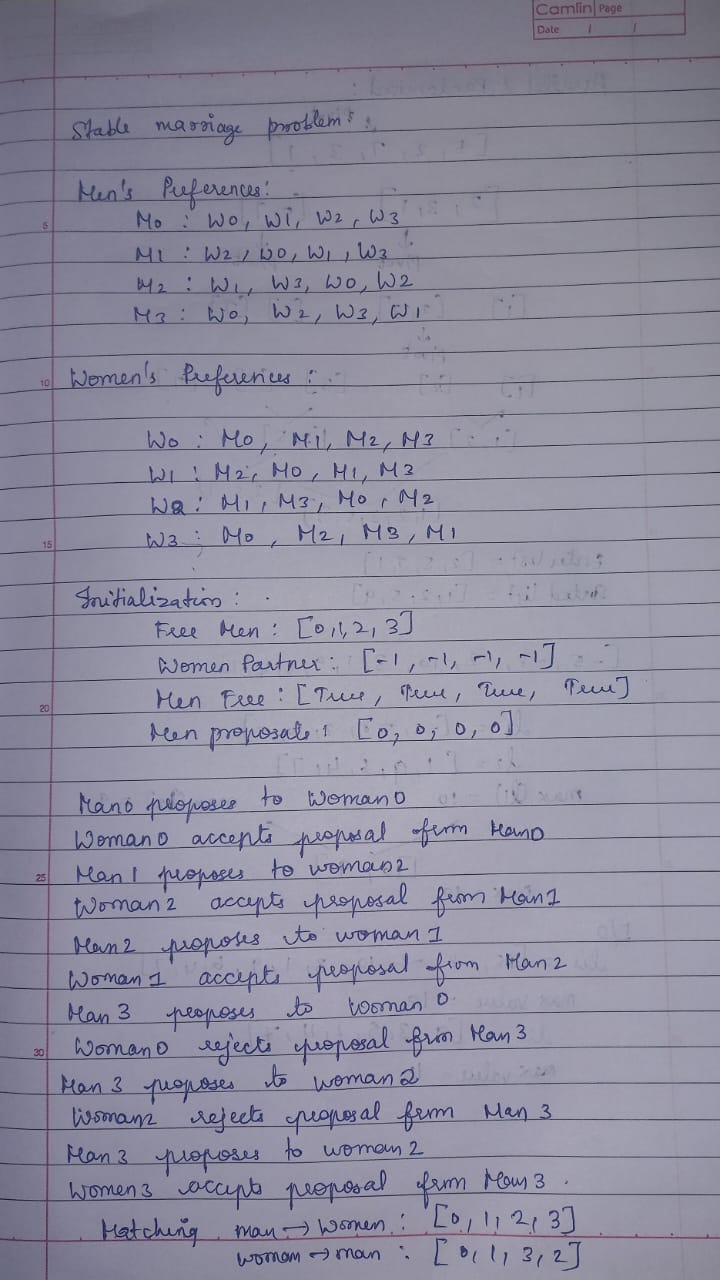 Camlin Page
Date / /
Stable marriage problem :
Men's Preferences:
5
M0 : W0, W1, W2, W3
M1 : W2, W0, W1, W3
M2 : W1, W3, W0, W2
M3 : W0, W2, W3, W1
10 Women's Preferences :
W0 : M0, M1, M2, M3
W1 : M2, M0, M1, M3
W2 : M1, M3, M0, M2
15
W3 : M0, M2, M3, M1
Initialization :
Free Men : [0,1,2,3]
Women Partner : [-1, -1, -1, -1]
20
Men Free : [True, True, True, True]
Men proposals : [0, 0, 0, 0]
Man0 proposes to Woman0
Woman0 accepts proposal from Man0
25 Man 1 proposes to woman2
Woman 2 accepts proposal from Man1
Man 2 proposes to woman 1
Woman 1 accepts proposal from Man 2
Man 3 proposes to Woman 0
30 Woman0 rejects proposal from Man 3
Man 3 proposes to woman 2
Woman2 rejects proposal from Man 3
Man 3 proposes to woman 2
Women 3 accepts proposal from Man 3.
Matching man → Women : [0, 1, 2, 3]
woman → man : [0, 1, 3, 2]